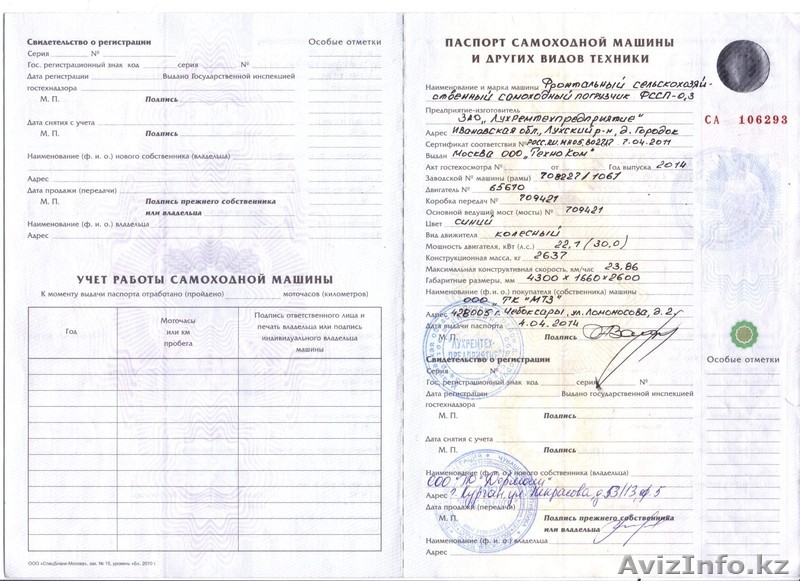 Свидетельство о регистрации
Особые отметки
Серия № 
Гос. регистрационный знак код серия №
Дата регистрации Выдано Государственной инспекцией
гостехнадзора
М. П. Подпись
Дата снятия с учета
М. П. Подпись
Наименование (ф. и. о.) нового собственника (владельца)
Адрес
Дата продажи (передачи)
М. П. Подпись прежнего собственника
или владельца
Наименование (ф. и. о.) владельца
Адрес
УЧЕТ РАБОТЫ САМОХОДНОЙ МАШИНЫ
К моменту выдачи паспорта отработано (пройдено) моточасов (километров)
Год
Моточасы
или км
пробега
Подпись ответственного лица и
печать владельца или подпись
индивидуального владельца
машины
ООО «СпецБланк-Москва», зак. № 15, уровень «Б», 2010 г.
ПАСПОРТ САМОХОДНОЙ МАШИНЫ
И ДРУГИХ ВИДОВ ТЕХНИКИ
Наименование и марка машины Фронтальный сельскохозяй-
ственный самоходный погрузчик ФССП-0,3
СА 106293
Предприятие-изготовитель
ЗАО "Лухремтехпредприятие"
Адрес Ивановская обл., Лухский р-н, д. Городок
Сертификат соответствия № 7.04.2011
Выдан Москва ООО "ТехноКом"
Акт гостехосмотра № от Год выпуска 2014
Заводской № машины (рамы) 708227/1061
Двигатель № 65610
Коробка передач № 709421
Основной ведущий мост (мосты) № 709421
Цвет синий
Вид движителя колесный
Мощность двигателя, кВт (л.с.) 22,1 (30,0)
Конструкционная масса, кг 2637
Максимальная конструктивная скорость, км/час 23,86
Габаритные размеры, мм 4300 × 1660 × 2600
Наименование (ф. и. о.) покупателя (собственника) машины
ООО "ТК "МТЗ"
Адрес 428005 г. Чебоксары, ул. Ломоносова, д. 2
Дата выдачи паспорта 4.04.2014
М. П. Подпись
ЛУХРЕМТЕХ-
ПРЕДПРИЯТИЕ
Свидетельство о регистрации
Особые отметки
Серия №
Гос. регистрационный знак код серия №
Дата регистрации Выдано государственной инспекцией
гостехнадзора
М. П. Подпись
Дата снятия с учета
М. П. Подпись
Наименование (ф. и. о.) нового собственника (владельца)
ООО
Адрес г. Курган, ул. Некрасова
Дата продажи (передачи)
М. П. Подпись прежнего собственника
или владельца
Наименование (ф. и. о.) владельца
Адрес
AvizInfo.kz